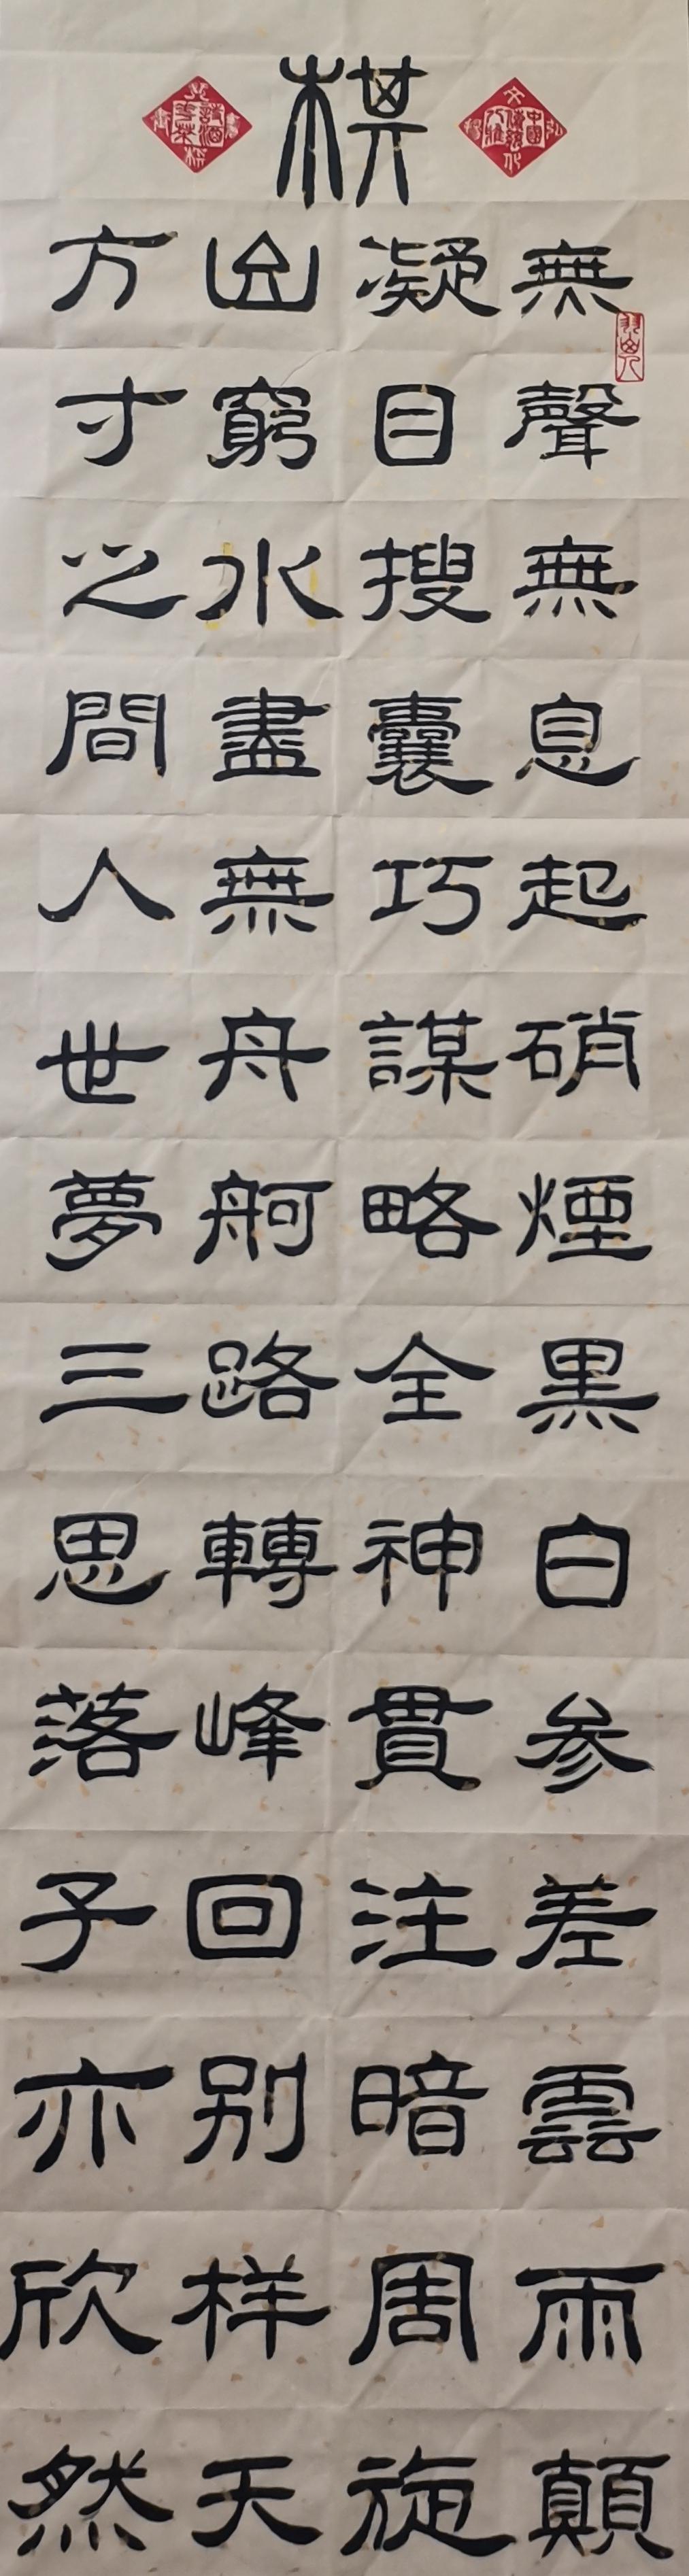 棋
無聲無息起硝煙黑白参差雲雨顛
凝目搜囊巧謀略全神貫注暗周旋
山窮水盡無舟舸路轉峰回别样天
方寸之間人世夢三思落子亦欣然